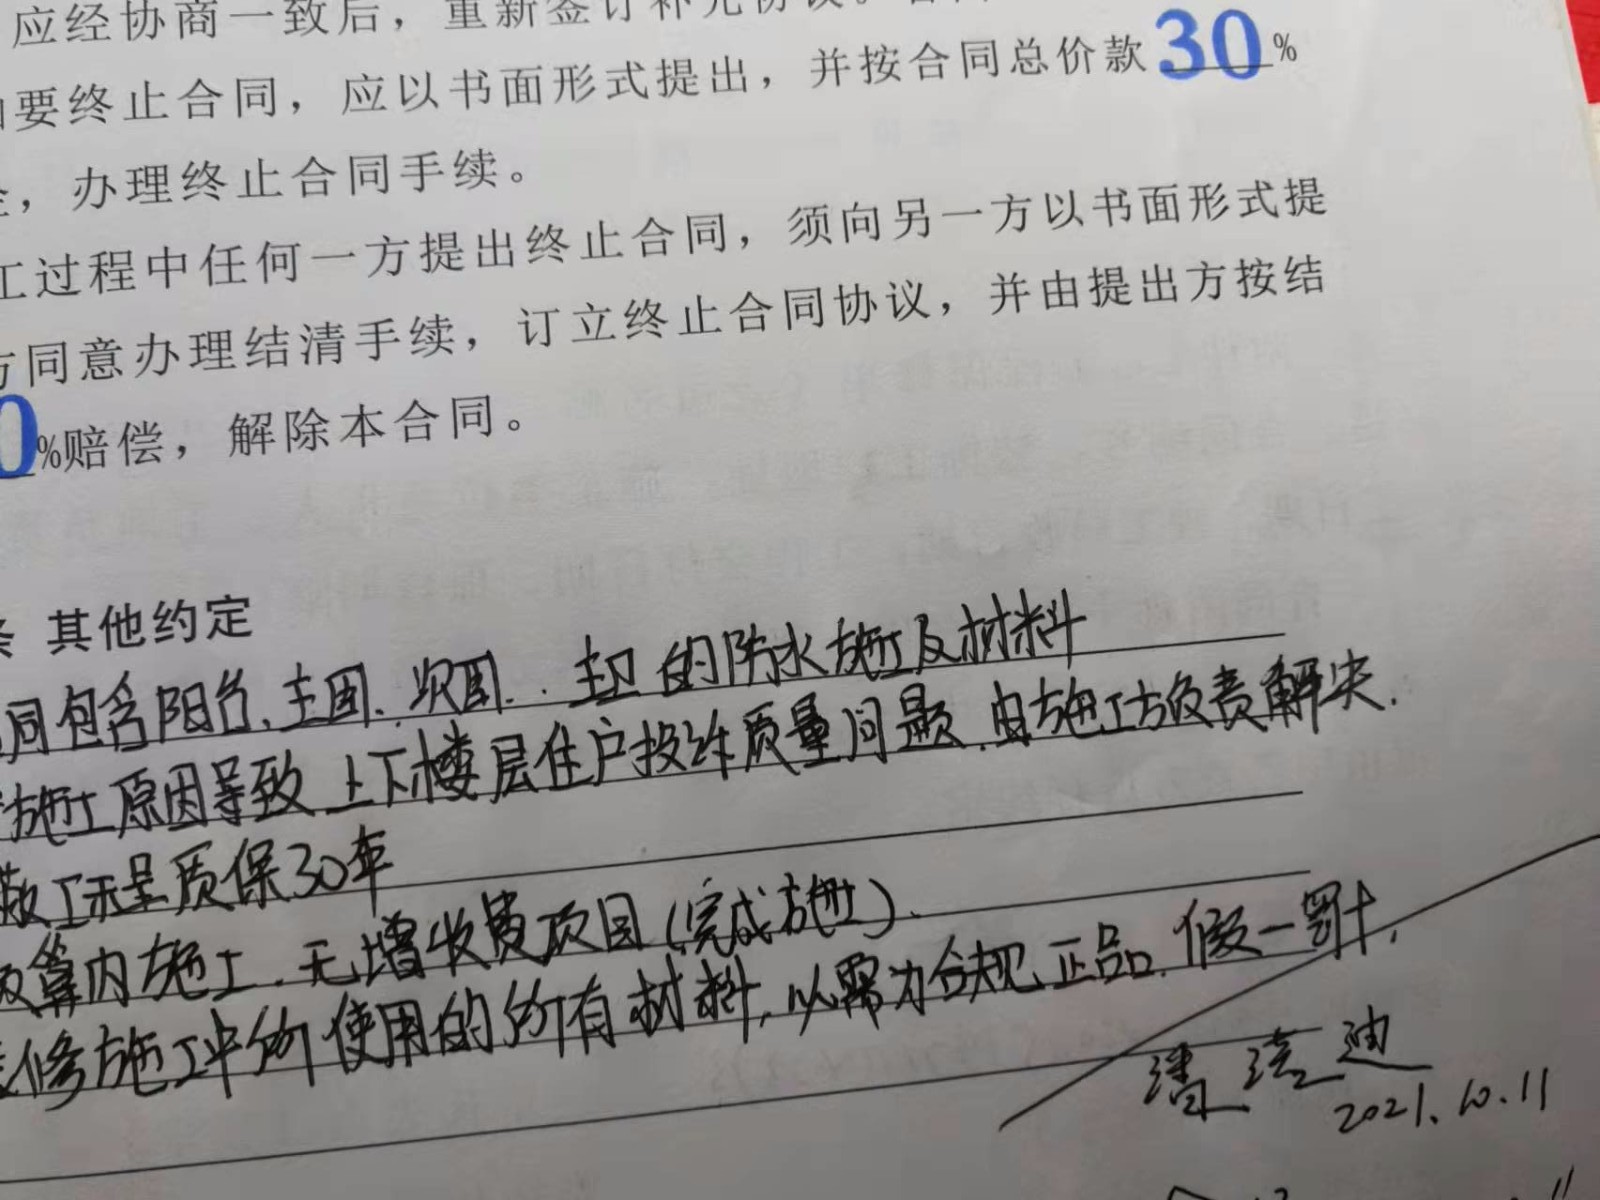 应经协商一致后，重新签订补充协议。
要终止合同，应以书面形式提出，并按合同总价款30%
，办理终止合同手续。
工过程中任何一方提出终止合同，须向另一方以书面形式提
方同意办理结清手续，订立终止合同协议，并由提出方按结
0%赔偿，解除本合同。
其他约定
同包含阳台、主卫、次卫、主卫的防水施工及材料
施工原因导致上下楼层住户投诉质量问题，由施工方负责解决。
做工质量质保30年
预算内施工，无增收费项目（完成施工）。
修施工中所使用的所有材料，必需为合规正品，假一罚十，
2021.10.11